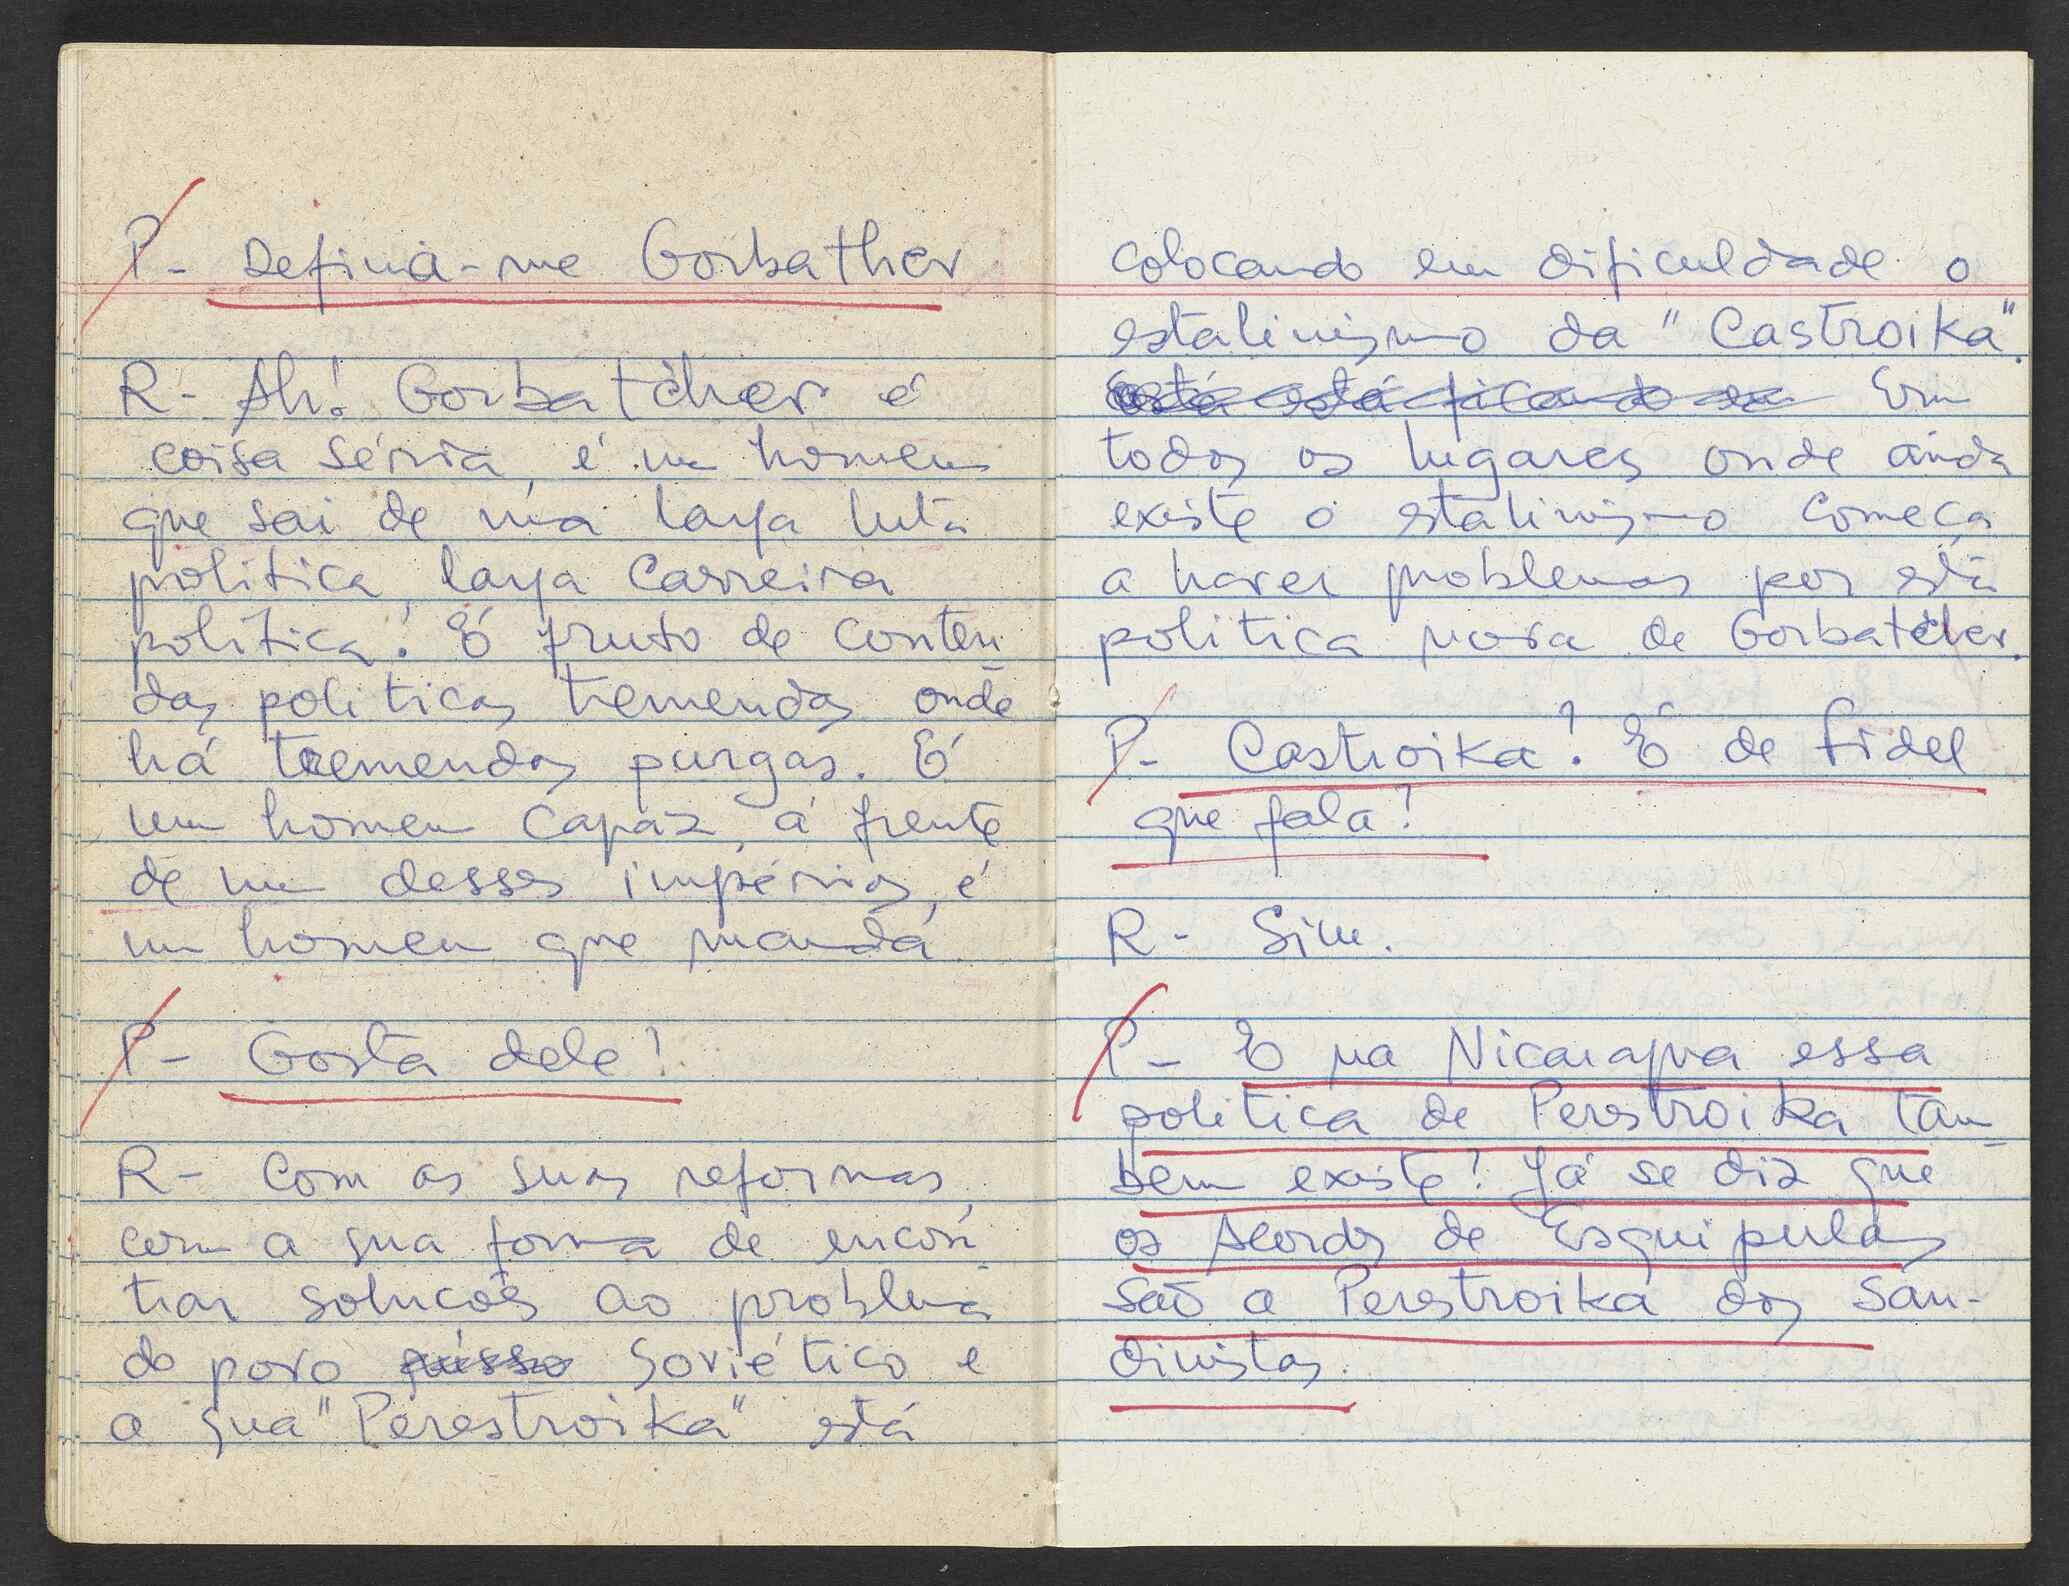 P- Defina-me Gorbatchev
R- Ah! Gorbatchev é
coisa séria, é um homem
que sai de uma larga luta
politica, larga carreira
politica. É fruto de conten-
das politicas tremendas onde
há tremendas purgas. É
um homem capaz, á frente
de um desses impérios, é
um homem que manda
P- Gosta dele?
R- Com as suas reformas,
com a sua forma de encon-
trar soluções ao problema
do povo russo Soviético e
a sua "Perestroika" está
colocando em dificuldade o
estalinismo da "Castroika".
está ficando em Em
todos os lugares onde ainda
existe o estalinismo começa
a haver problemas por esta
politica nova de Gorbatchev.
P- Castroika? É de Fidel
que fala?
R- Sim.
P- E na Nicaragua essa
politica de Perestroika tam-
bem existe? Já se diz que
os Acordos de Esquipulas
são a Perestroika dos San-
dinistas.